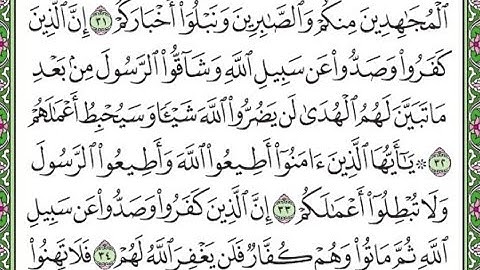 ٱلْمُجَٰهِدِينَ مِنكُمْ وَٱلصَّٰبِرِينَ وَنَبْلُوَا۟ أَخْبَارَكُمْ ٣١ إِنَّ ٱلَّذِينَ
كَفَرُوا۟ وَصَدُّوا۟ عَن سَبِيلِ ٱللَّهِ وَشَآقُّوا۟ ٱلرَّسُولَ مِنۢ بَعْدِ
مَا تَبَيَّنَ لَهُمُ ٱلْهُدَىٰ لَن يَضُرُّوا۟ ٱللَّهَ شَيْـًٔا وَسَيُحْبِطُ أَعْمَٰلَهُمْ
٣٢ ۞ يَٰٓأَيُّهَا ٱلَّذِينَ ءَامَنُوٓا۟ أَطِيعُوا۟ ٱللَّهَ وَأَطِيعُوا۟ ٱلرَّسُولَ
وَلَا تُبْطِلُوٓا۟ أَعْمَٰلَكُمْ ٣٣ إِنَّ ٱلَّذِينَ كَفَرُوا۟ وَصَدُّوا۟ عَن سَبِيلِ
ٱللَّهِ ثُمَّ مَاتُوا۟ وَهُمْ كُفَّارٌ فَلَن يَغْفِرَ ٱللَّهُ لَهُمْ ٣٤ فَلَا تَهِنُوا۟